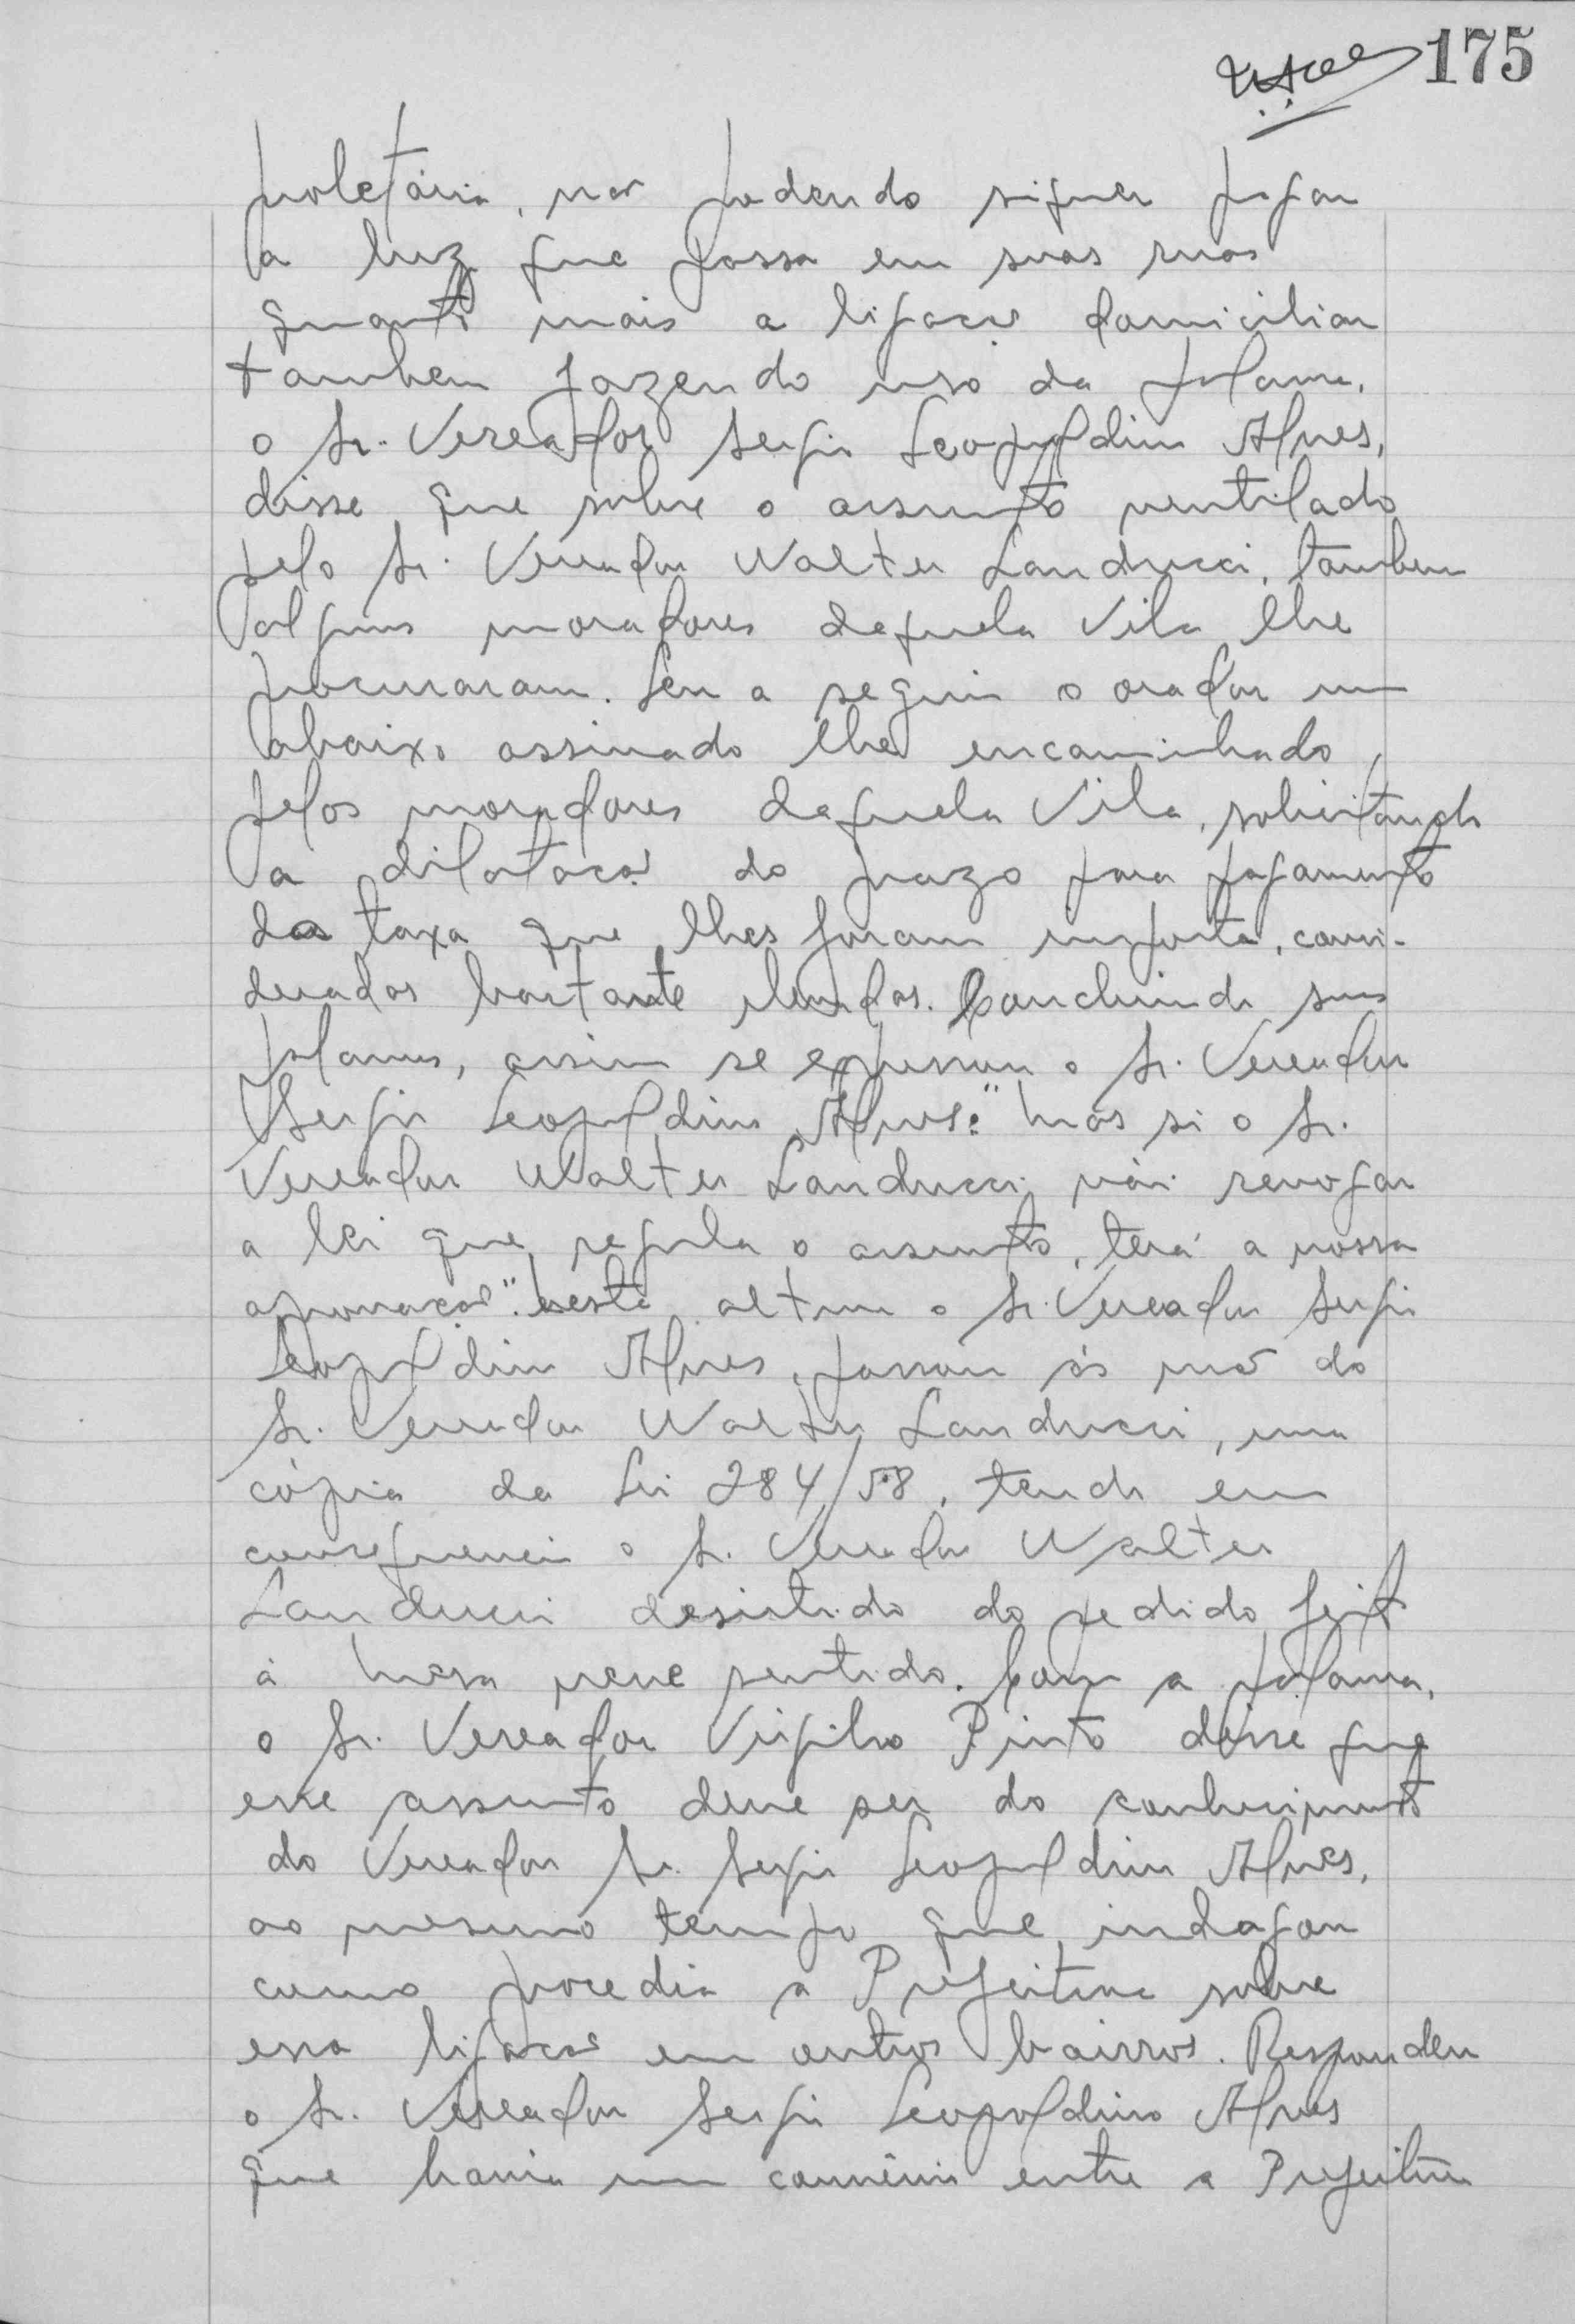 175
proletária, não podendo siquer pagar
a luz que passa em suas ruas
quanto mais a ligação domiciliar
tambem fazendo uso da palavra,
o Sr. Vereador Sergio Leopoldino Alves,
disse que sobre o assunto ventilado
pelo Sr. Vereador Walter Landucci, tambem
alguns moradores daquela Vila lhe
procuraram. Leu a seguir o orador um
abaixo assinado lhe encaminhado
pelos moradores daquela Vila, solicitando
a dilatação do prazo para pagamento
das taxa que lhes foram imposta, consi-
deradas bastante elevadas. Concluindo suas
palavras, assim se expressou o Sr. Vereador
Sergio Leopoldino Alves: "Mas si o Sr.
Vereador Walter Landucci vai revogar
a lei que regula o assunto, terá a nossa
aprovação". Nesta altura o Sr. Vereador Sergio
Leopoldino Alves, passou ás mão do
Sr. Vereador Walter Landucci, uma
cópia da Lei 284/58, tendo em
consequencia o Sr. Vereador Walter
Landucci desistido do pedido feito
á Mesa nesse sentido. Com a palavra,
o Sr. Vereador Virgilio Pinto disse que
esse assunto deve ser do conhecimento
do Vereador Sr. Sergio Leopoldino Alves,
ao mesmo tempo que indagou
como procedia a Prefeitura sobre
essa ligação em outros bairros. Respondeu
o Sr. Vereador Sergio Leopoldino Alves
que havia um convênio entre a Prefeitura